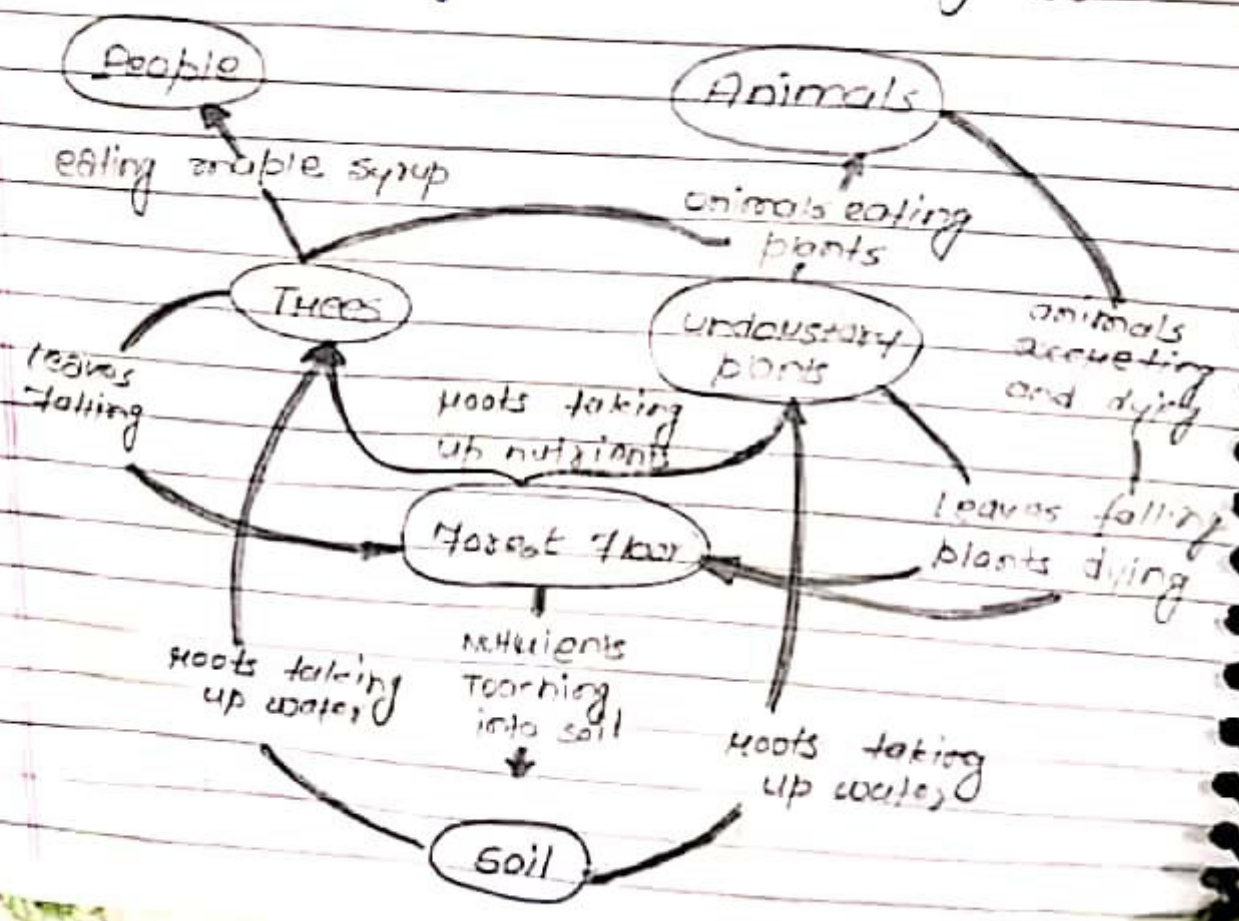 People
Animals
eating maple syrup
animals eating
plants
Trees
understory
plants
animals
and dying
leaves
falling
roots taking
up nutrients
Forest Floor
leaves falling
plants dying
roots taking
up water
Nutrients
into soil
roots taking
up water
Soil